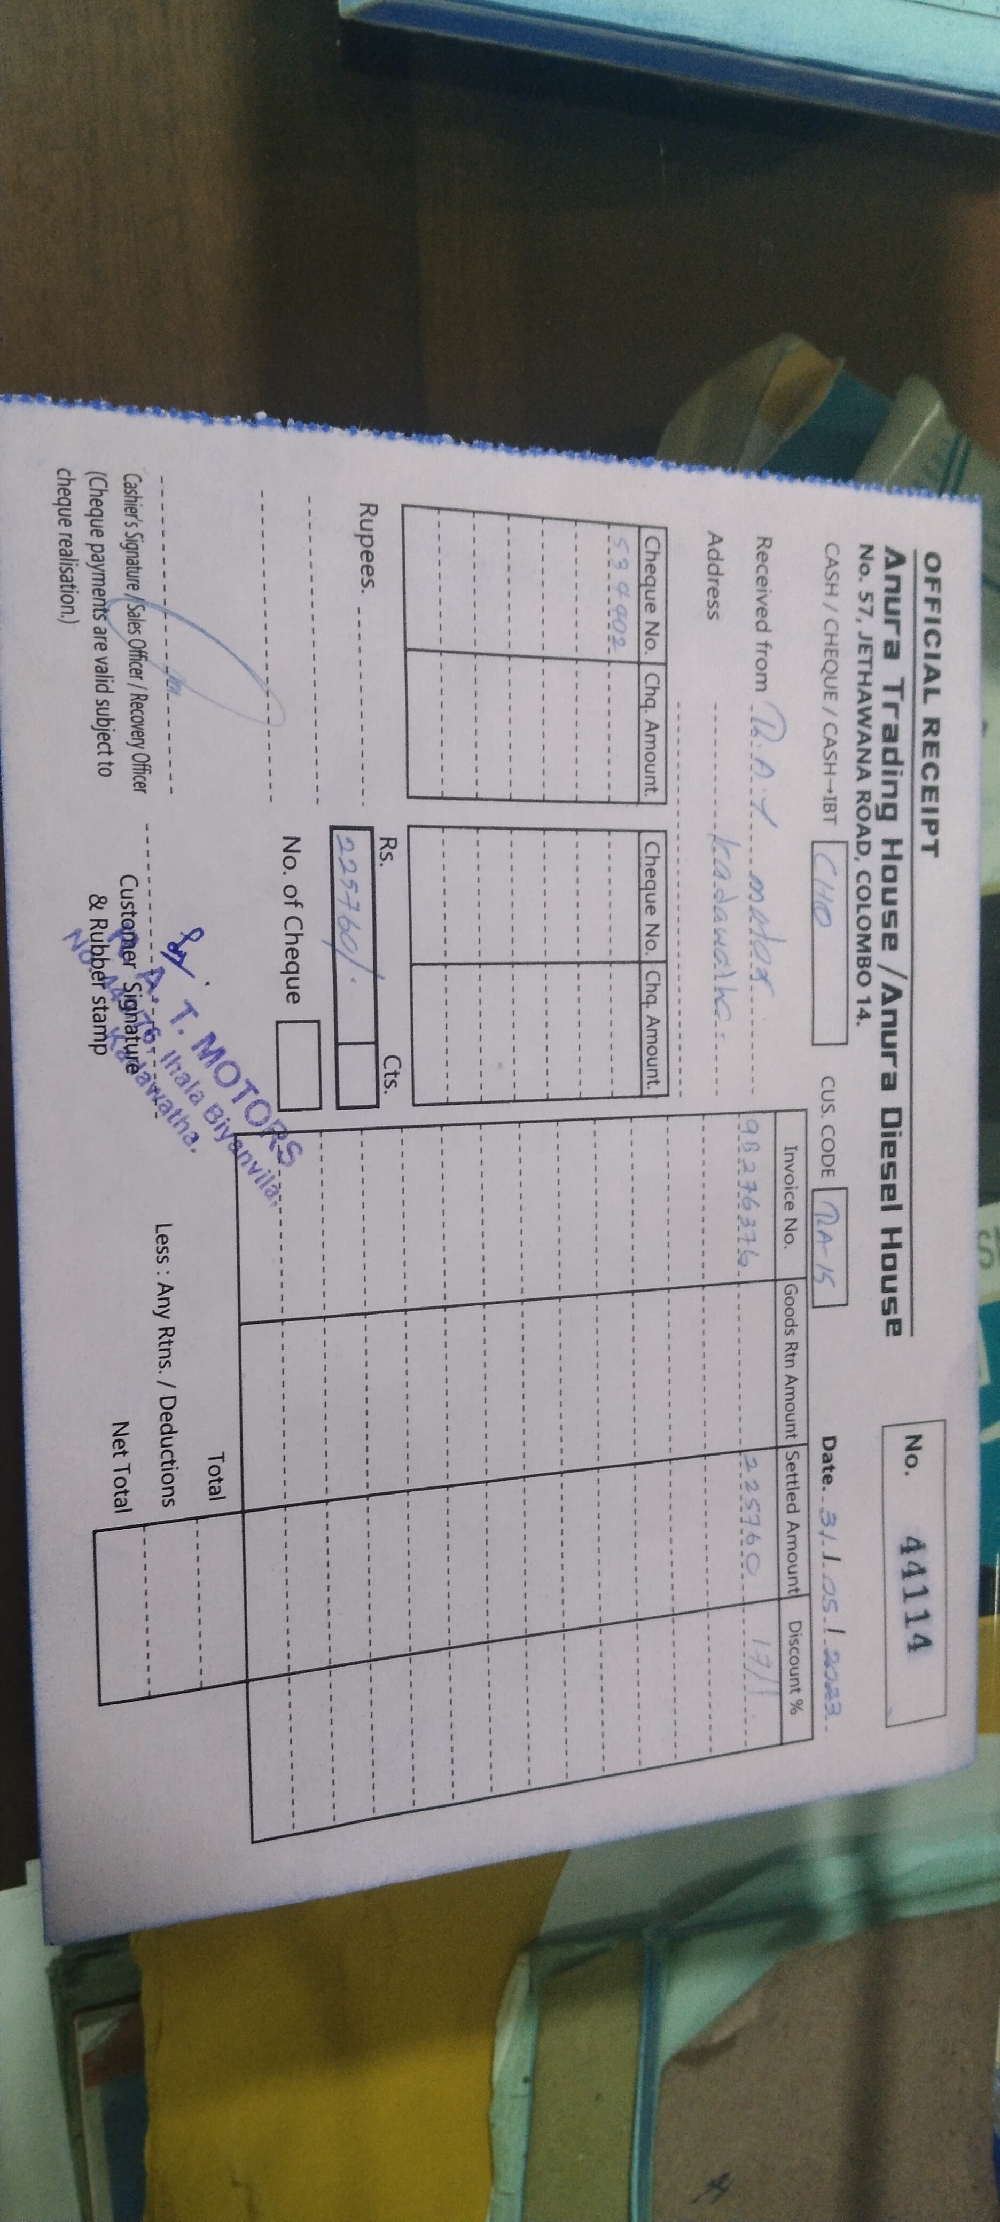 OFFICIAL RECEIPT
No. 44114
Anura Trading House / Anura Diesel House
No. 57, JETHAWANA ROAD, COLOMBO 14.
CASH / CHEQUE / CASH→IBT CUS. CODE RA-15 Date. 31/05/2023
Received from R.A.Y motor
Address Kadawatha
Cheque No. Chq. Amount. Cheque No. Chq. Amount.
Invoice No. Goods Rtn Amount Settled Amount Discount %
98276376 225760 17%
Rupees.
Rs. Cts.
225760/-
No. of Cheque
Total
Less : Any Rtns. / Deductions
Net Total
Cashier's Signature / Sales Officer / Recovery Officer
(Cheque payments are valid subject to
cheque realisation.)
Customer Signature
& Rubber stamp
A. T. MOTORS
Ihala Biyanvila,
Kadawatha.